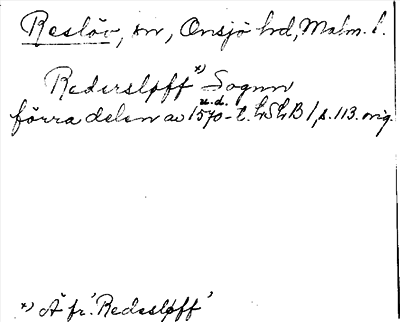 Reslöv, sn, Onsjö hd, Malm. l.
Redersløff *) Sognn
u.d.
förra delen av 1570-t. LSLB 1, s. 113. orig.
*) Ä fr. 'Redesløff'